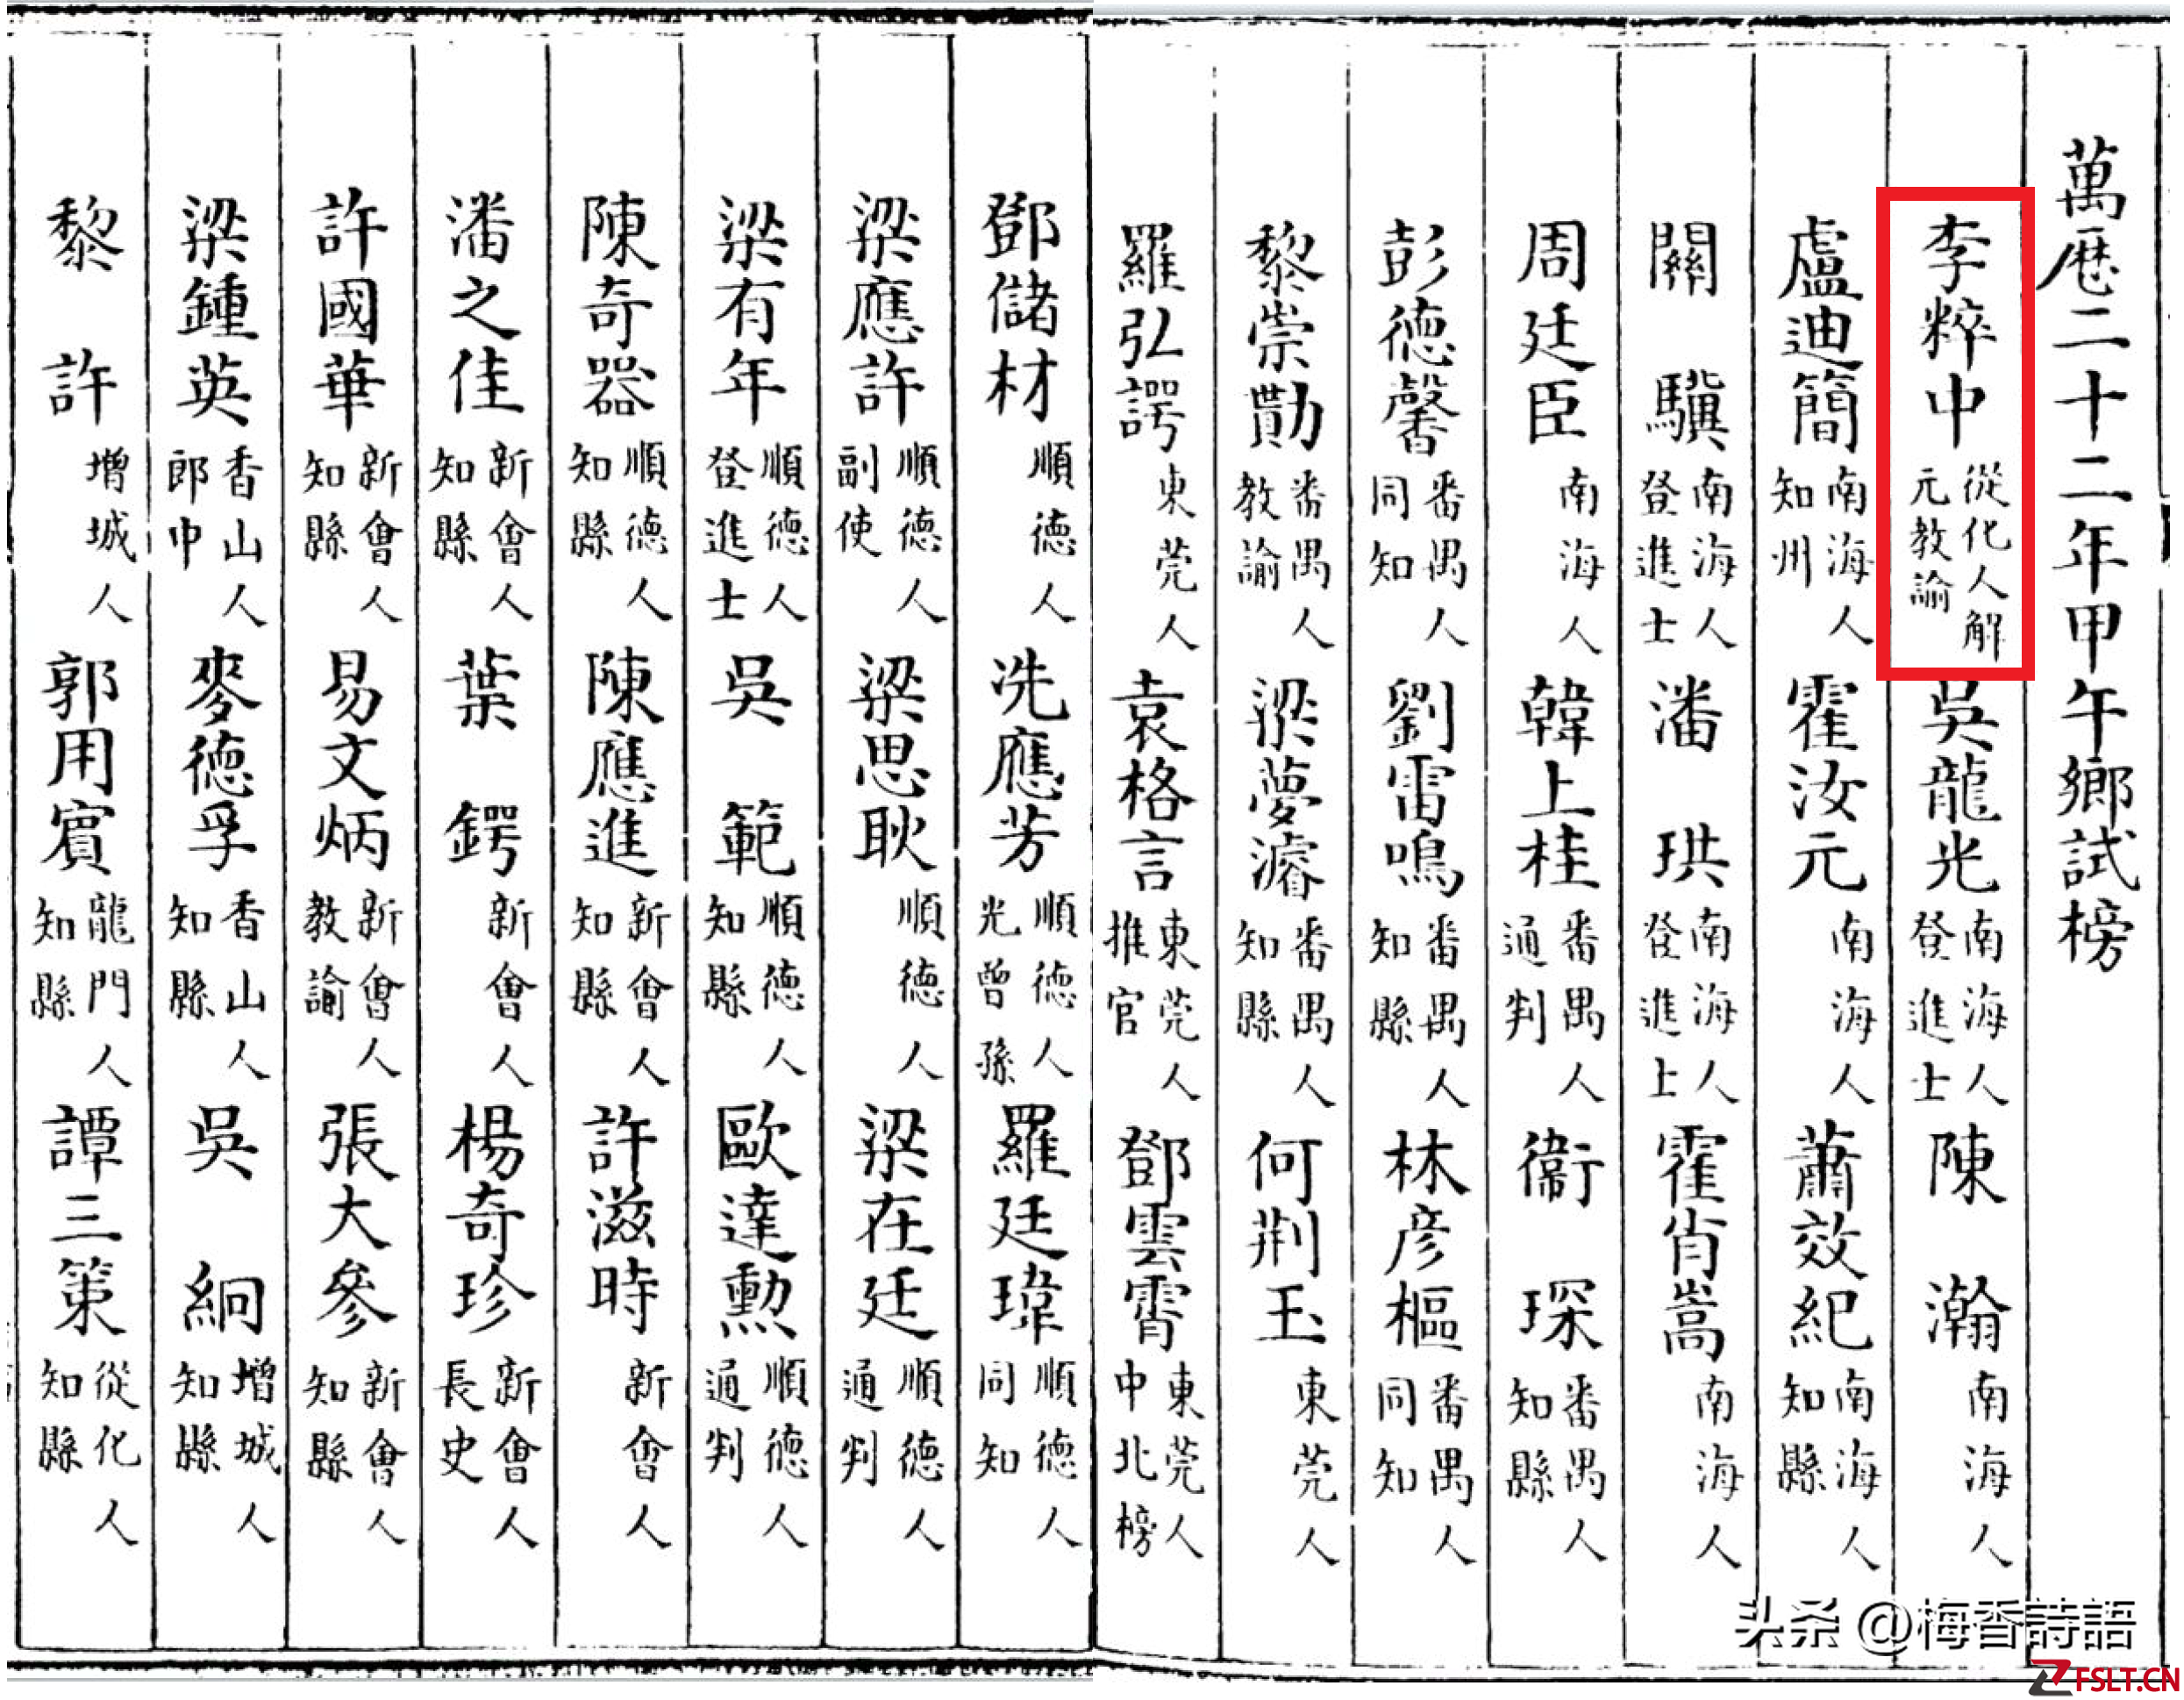 萬厯二十二年甲午鄉試榜
李粹中從化人解元教諭 吳龍光南海人登進士 陳瀚南海人
盧迪簡南海人知州 霍汝元南海人 蕭效紀南海人知縣
關驥南海人登進士 潘珙南海人登進士 霍肖嵩南海人
周廷臣南海人 韓上桂番禺人通判 衞琛番禺人知縣
彭德馨番禺人同知 劉雷鳴番禺人知縣 林彥樞番禺人同知
黎崇勛番禺人教諭 梁夢濬番禺人知縣 何荆玉東莞人
羅弘諤東莞人 袁格言東莞人推官 鄧雲霄東莞人中北榜
鄧儲材順德人 冼應芳順德人光曾孫 羅廷瑋順德人同知
梁應許順德人副使 梁思耿順德人 梁在廷順德人通判
梁有年順德人登進士 吳範順德人知縣 歐達勲順德人通判
陳奇器順德人知縣 陳應進新會人知縣 許滋時新會人
潘之佳新會人知縣 葉鍔新會人 楊奇珍新會人長史
許國華新會人知縣 易文炳新會人教諭 張大參新會人知縣
梁鍾英香山人郎中 麥德孚香山人知縣 吳絅增城人知縣
黎許增城人 郭用賓龍門人知縣 譚三策從化人知縣
头条 @梅香詩語
FSLT.CN